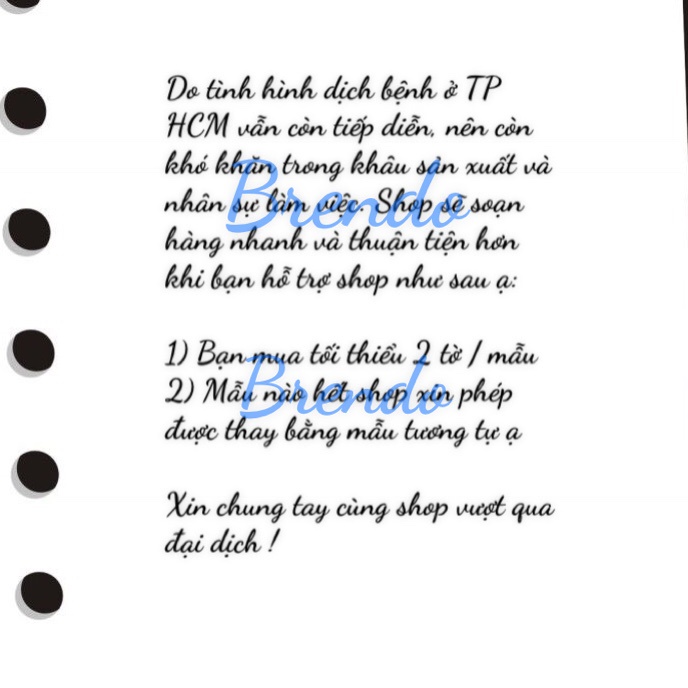 Do tình hình dịch bệnh ở TP
HCM vẫn còn tiếp diễn, nên còn
khó khăn trong khâu sản xuất và
nhân sự làm việc. Shop sẽ soạn
hàng nhanh và thuận tiện hơn
khi bạn hỗ trợ shop như sau ạ:
1) Bạn mua tối thiểu 2 tờ / mẫu
2) Mẫu nào hết shop xin phép
được thay bằng mẫu tương tự ạ
Xin chung tay cùng shop vượt qua
đại dịch !
Brendo
Brendo